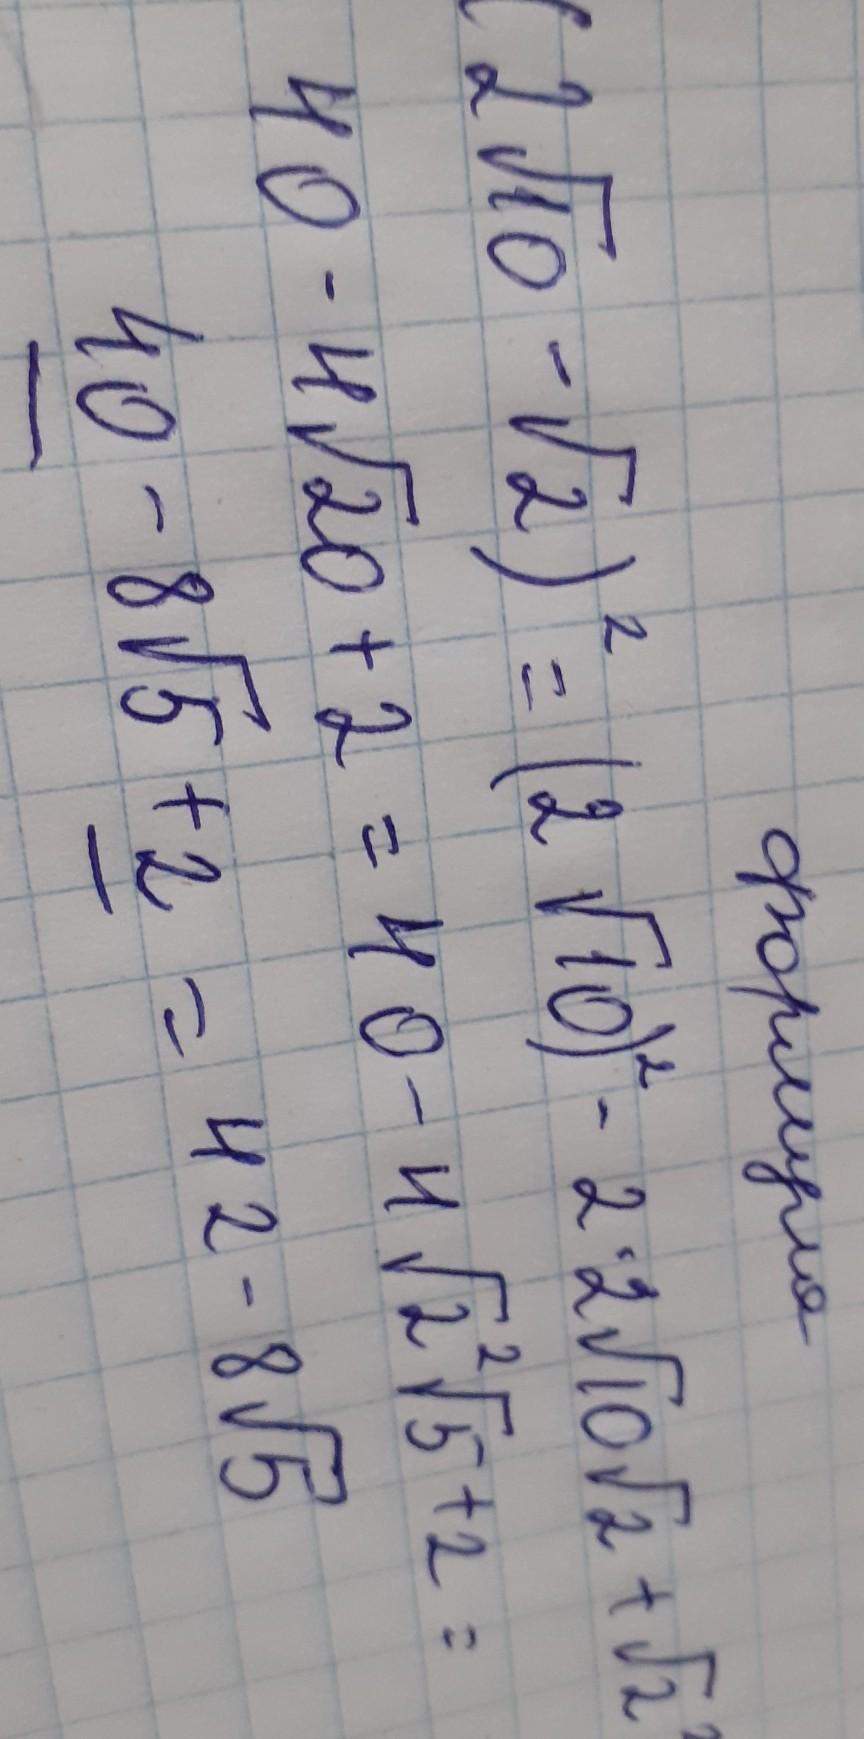 формула
(2√10 - √2)² = (2√10)² - 2·2√10√2 + √2²
40 - 4√20 + 2 = 40 - 4√2²√5 + 2 =
40 - 8√5 + 2 = 42 - 8√5